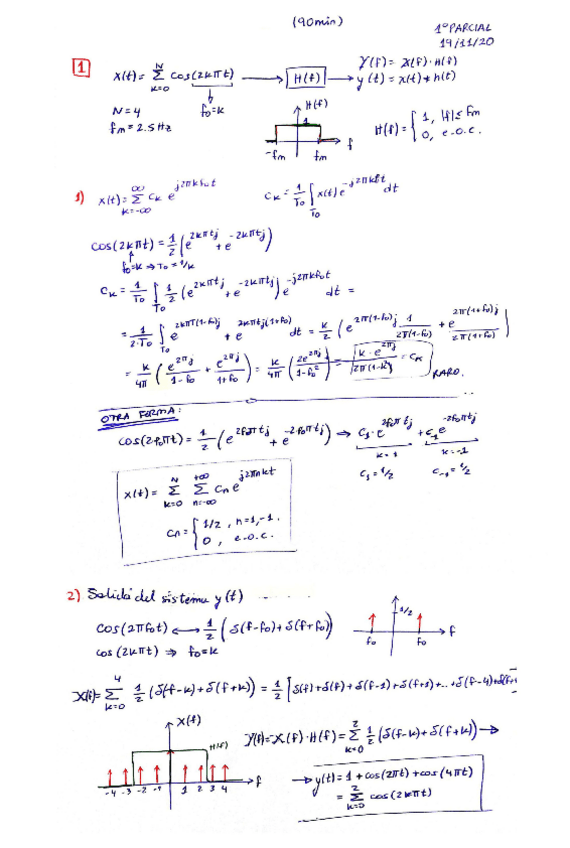 (90min)
1º PARCIAL
19/11/20
1
x(t) = Σ_{k=0}^{N} cos(2kπt) → H(f) → Y(f) = X(f)·H(f)
y(t) = x(t)*h(t)
f₀=k
N=4
fm = 2.5Hz
H(f)
1
-fm fm f
H(f) = { 1, |f| ≤ fm
0, e.o.c.
1) x(t) = Σ_{k=-∞}^{∞} c_k e^{j2πkf₀t} c_k = 1/T₀ ∫_{T₀} x(t) e^{-j2πkf₀t} dt
cos(2kπt) = 1/2 (e^{2kπtj} + e^{-2kπtj})
f₀=k ⇒ T₀ = 1/k
c_k = 1/T₀ ∫_{T₀} 1/2 (e^{2kπtj} + e^{-2kπtj}) e^{-j2πkf₀t} dt =
= 1/(2·T₀) ∫_{T₀} e^{2kπT(1-f₀)j} + e^{2kπtj(1+f₀)} dt = k/2 (e^{2π(1-f₀)j} 1/(2π(1-f₀)) + e^{2π(1+f₀)j}/(2π(1+f₀)))
= k/4π (e^{2πj}/(1-f₀) + e^{2πj}/(1+f₀)) = k/4π (2e^{2πj}/(1-f₀²)) = k·e^{2πj}/(2π(1-k²)) = c_k
RARO.
OTRA FORMA:
cos(2f₀πt) = 1/2 (e^{2f₀πtj} + e^{-2f₀πtj}) ⇒ c₁·e^{2f₀πtj} + c₋₁e^{-2f₀πtj}
k=1 k=-1
c₁=1/2 c₋₁=1/2
x(t) = Σ_{k=0}^{N} Σ_{n=-∞}^{+∞} c_n e^{j2πnkt}
c_n = { 1/2, n=1,-1.
0, e.o.c.
2) Salida del sistema y(t)
cos(2πf₀t) ⟷ 1/2 (δ(f-f₀)+δ(f+f₀))
1/2
f₀ f₀ f
cos(2kπt) ⇒ f₀=k
X(f) = Σ_{k=0}^{4} 1/2 (δ(f-k)+δ(f+k)) = 1/2 [δ(f)+δ(f)+δ(f-1)+δ(f+1)+..+δ(f-4)+δ(f+
X(f)
H(f)
-4 -3 -2 -1 1 2 3 4 f
Y(f)=X(f)·H(f) = Σ_{k=0}^{2} 1/2 (δ(f-k)+δ(f+k)) →
→ y(t) = 1 + cos(2πt) + cos(4πt)
= Σ_{k=0}^{2} cos(2kπt)